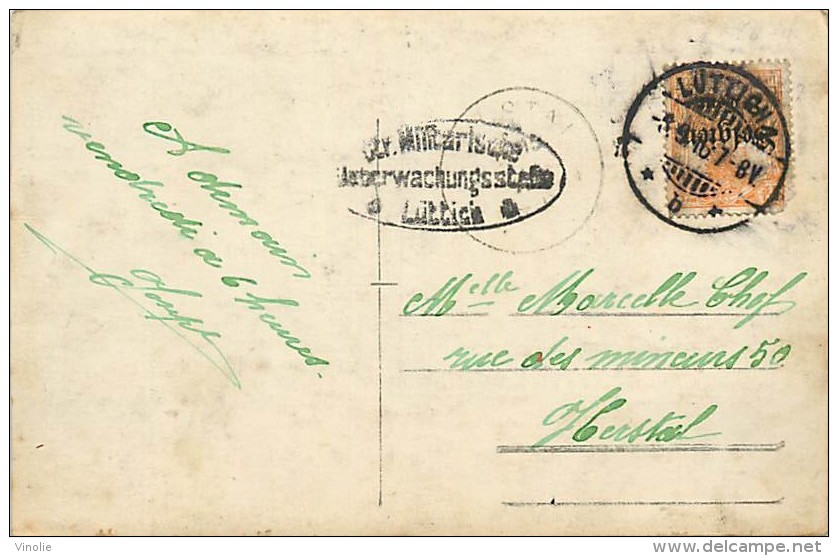 A demain
vendredi à 6 heures.
Joseph
Mil. Militärische
Ueberwachungsstelle
Lüttich
STAL
LÜTTICH
7-8V
b
Belgien
Melle Marcelle Chef
rue des mineurs 50
Herstal
Vinolie
www.delcampe.net